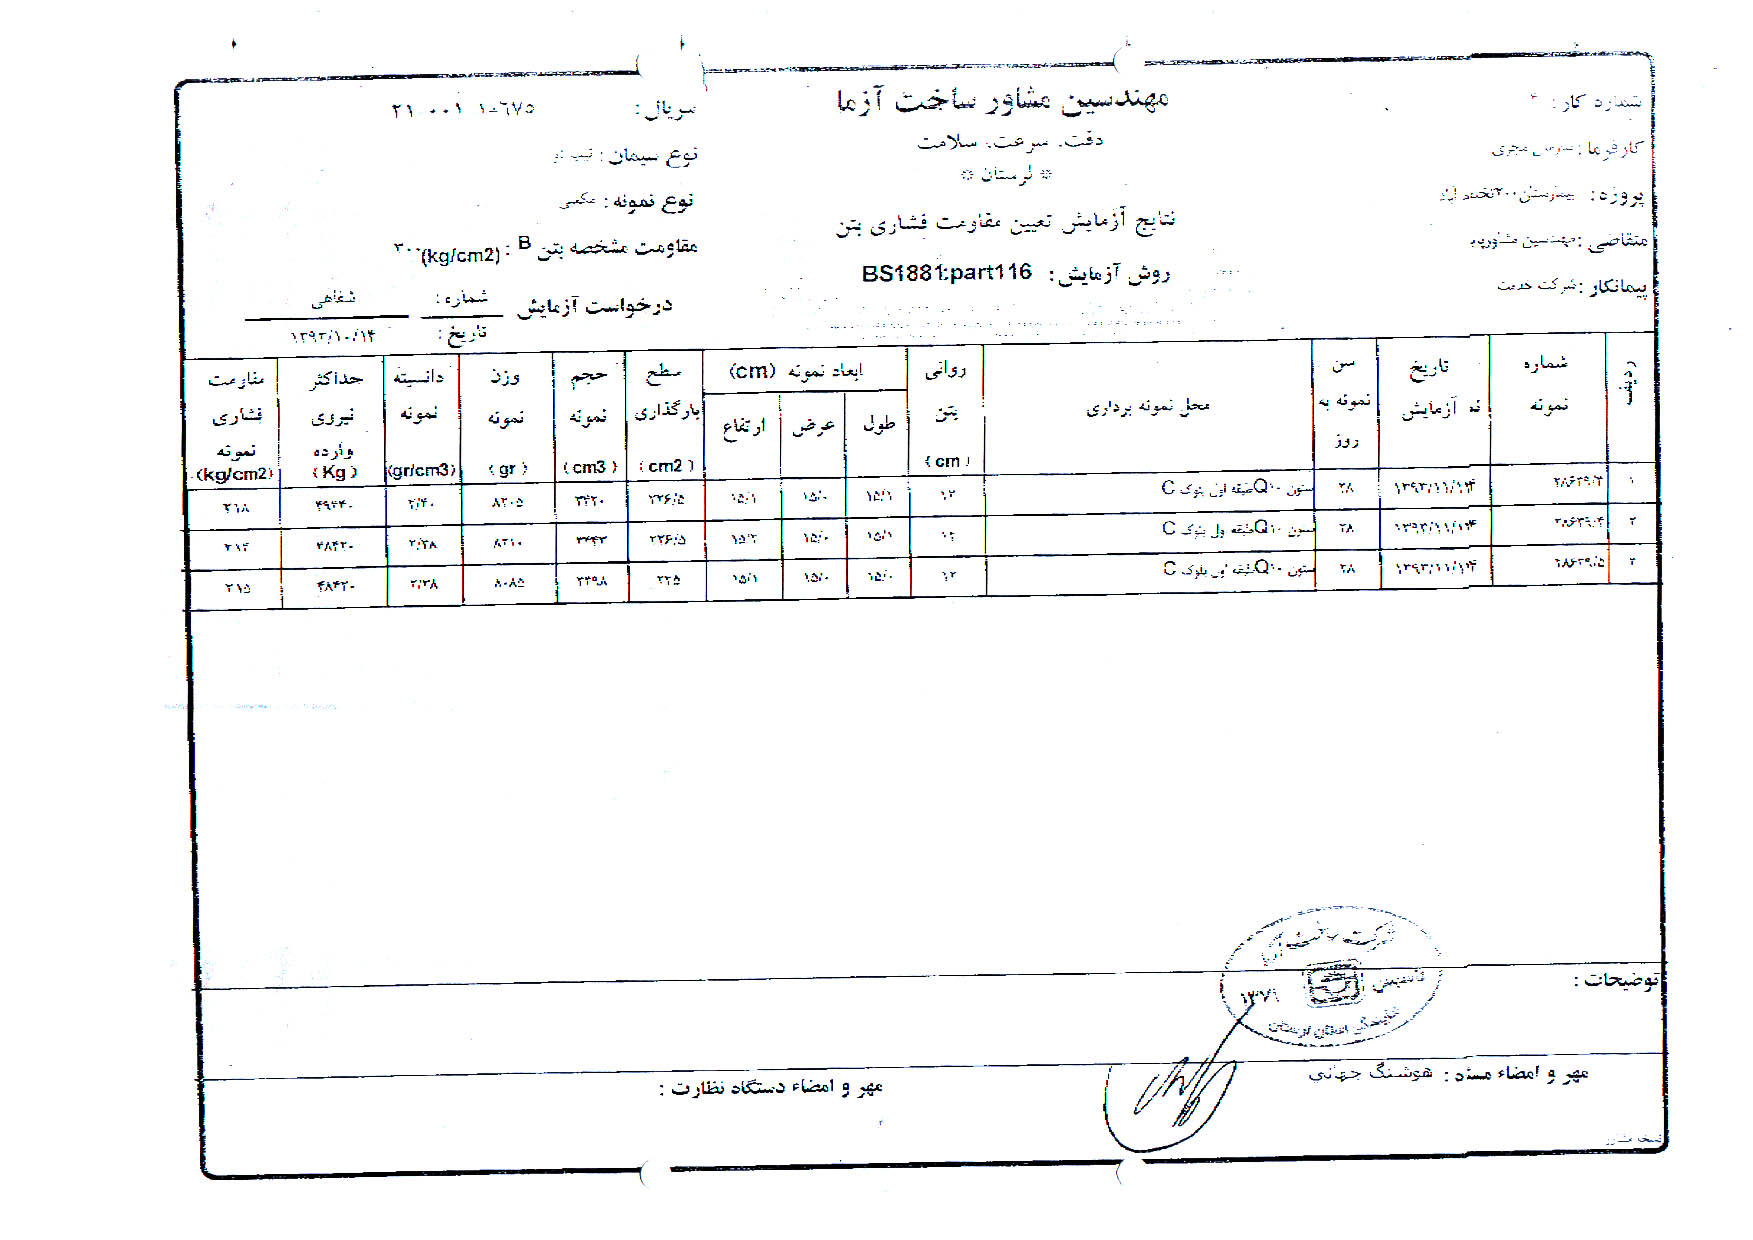 مهندسین مشاور ساخت آزما
دقت، سرعت، سلامت
* لرستان *
نتایج آزمایش تعیین مقاومت فشاری بتن
روش آزمایش: BS1881:part116
شماره کار:
کارفرما:
پروژه: بیمارستان
متقاضی: مهندسین مشاور
پیمانکار: شرکت خدمت
سریال:
نوع سیمان: تیپ دو
نوع نمونه: مکعبی
مقاومت مشخصه بتن B : ۳۰۰ (kg/cm2)
درخواست آزمایش شماره: شفاهی
تاریخ: ۱۳۹۳/۱۰/۱۴
ردیف شماره نمونه تاریخ آزمایش سن نمونه به روز محل نمونه برداری روانی بتن (cm) ابعاد نمونه (cm) طول عرض ارتفاع سطح بارگذاری (cm2) حجم نمونه (cm3) وزن نمونه (gr) دانسیته نمونه (gr/cm3) حداکثر نیروی وارده (Kg) مقاومت فشاری نمونه (kg/cm2)
۱ ۱۳۹۳/۱۱/۱۴ ۲۸ ستون Q۱۰ طبقه اول بلوک C ۱۲ ۱۵/۱ ۱۵/۰ ۱۵/۱ ۲۲۶/۵ ۳۴۲۰ ۸۲۰۵ ۲/۴۰ ۲۱۸
۲ ۱۳۹۳/۱۱/۱۴ ۲۸ ستون Q۱۰ طبقه اول بلوک C ۱۲ ۱۵/۱ ۱۵/۰ ۱۵/۲ ۲۲۶/۵ ۳۴۴۳ ۸۲۱۰ ۲/۳۸ ۴۸۴۲۰ ۲۱۴
۳ ۱۳۹۳/۱۱/۱۴ ۲۸ ستون Q۱۰ طبقه اول بلوک C ۱۲ ۱۵/۰ ۱۵/۰ ۱۵/۱ ۲۲۵ ۳۳۹۸ ۸۰۸۵ ۲/۳۸ ۴۸۴۲۰ ۲۱۵
توضیحات:
شرکت
تاسیس ۱۳۷۹
استان لرستان
مهر و امضاء مسئد: هوشنگ جهانی
مهر و امضاء دستگاه نظارت:
نسخه مشاور